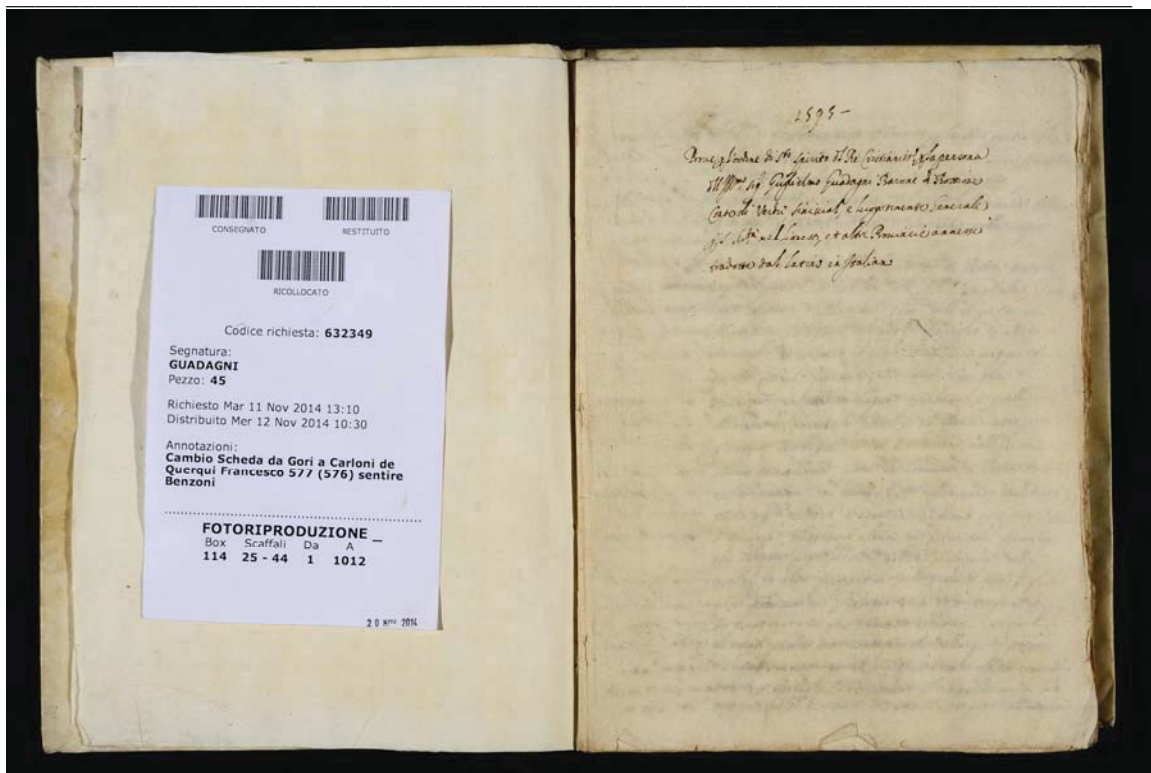 CONSEGNATO
RESTITUITO
RICOLLOCATO
Codice richiesta: 632349
Segnatura:
GUADAGNI
Pezzo: 45
Richiesto Mar 11 Nov 2014 13:10
Distribuito Mer 12 Nov 2014 10:30
Annotazioni:
Cambio Scheda da Gori a Carloni de
Querqui Francesco 577 (576) sentire
Benzoni
FOTORIPRODUZIONE _
Box Scaffali Da A
114 25 - 44 1 1012
2014
1595 -
Prove di Spirito Re la persona
sig. Guglielmo Guadagni Barone
Conte di Verdun e luogotenente Generale
nel et altre Provincie annesse
tradotte dal Latino in Italiano